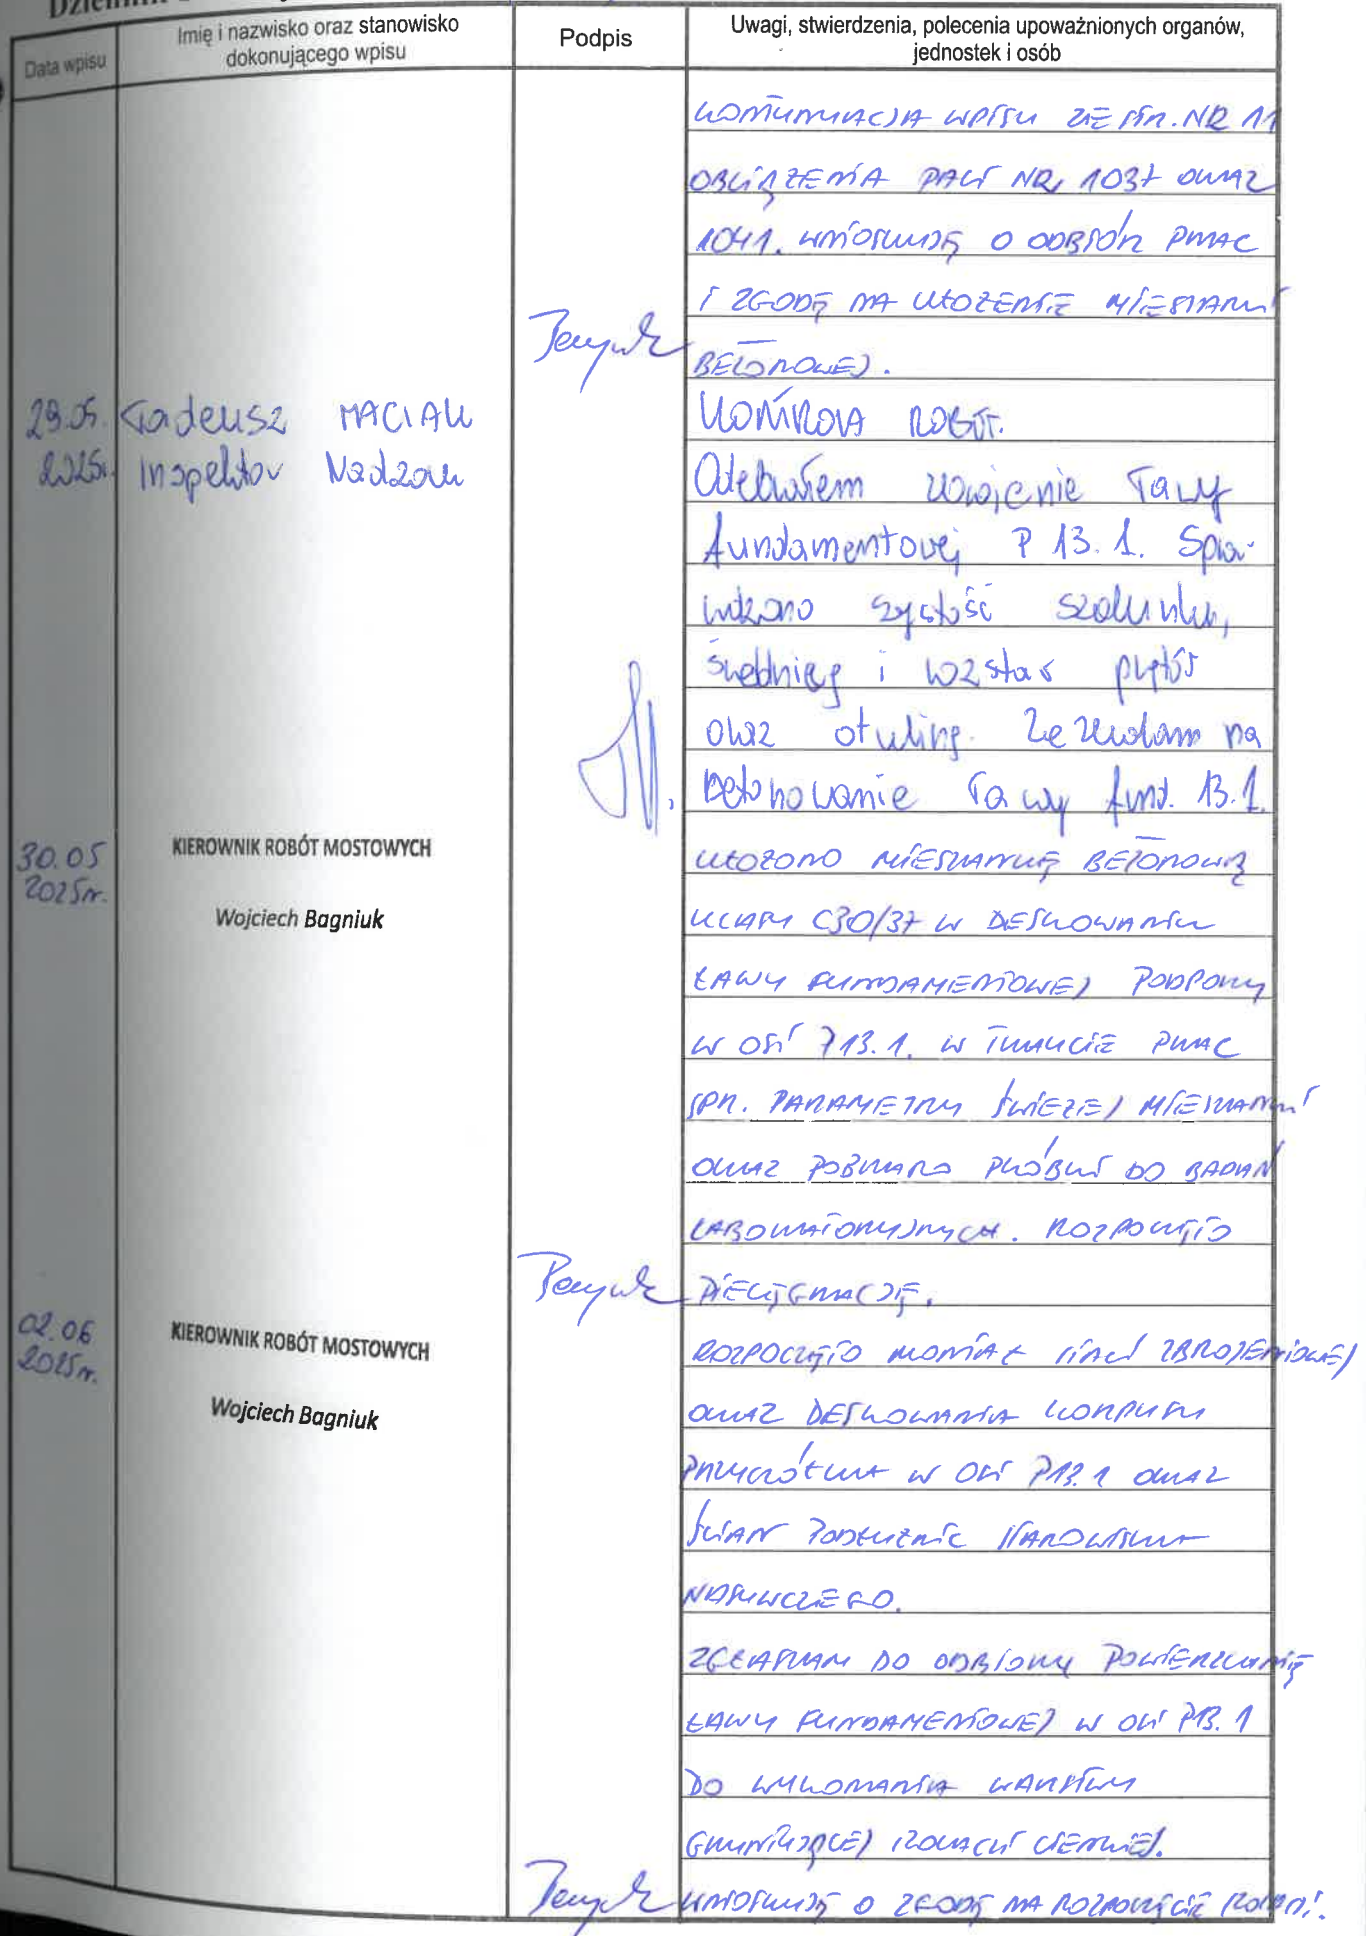 Data wpisu
Imię i nazwisko oraz stanowisko
dokonującego wpisu
Podpis
Uwagi, stwierdzenia, polecenia upoważnionych organów,
jednostek i osób
KONTYNUACJA WPISU ZE STR. NR 11
OBCIĄŻENIA PALI NR 1037 ORAZ
1041. WNIOSKUJĘ O ODBIÓR PRAC
I ZGODĘ NA UŁOŻENIE MIESZANKI
BETONOWEJ.
29.05.
2025r.
Tadeusz MACIAK
Inspektor Nadzoru
KONTROLA ROBÓT.
Odebrałem zbrojenie ławy
fundamentowej P 13.1. Spra-
wdzono czystość szalunku,
średnicę i rozstaw prętów
oraz otulinę. Zezwalam na
betonowanie ławy fund. 13.1.
30.05
2025r.
KIEROWNIK ROBÓT MOSTOWYCH
Wojciech Bagniuk
UŁOŻONO MIESZANKĘ BETONOWĄ
KLASY C30/37 W DESKOWANIU
ŁAWY FUNDAMENTOWEJ PODPORY
W OSI P13.1. W TRAKCIE PRAC
SPR. PARAMETRY ŚWIEŻEJ MIESZANKI
ORAZ POBRANO PRÓBKI DO BADAŃ
LABORATORYJNYCH. ROZPOCZĘTO
PIELĘGNACJĘ.
02.06
2025r.
KIEROWNIK ROBÓT MOSTOWYCH
Wojciech Bagniuk
ROZPOCZĘTO MONTAŻ STALI ZBROJENIOWEJ
ORAZ DESKOWANIA KORPUSU
PRZYCZÓŁKA W OSI P13.1 ORAZ
ŚCIAN PODŁUŻNIC STANOWISKA
ZGŁASZAM DO ODBIORU POWIERZCHNIĘ
ŁAWY FUNDAMENTOWEJ W OSI P13.1
DO WYKONANIA WARSTWY
GRUNTUJĄCEJ IZOLACJI CIENKIEJ.
WNIOSKUJĘ O ZGODĘ NA ROZPOCZĘCIE ROBÓT.